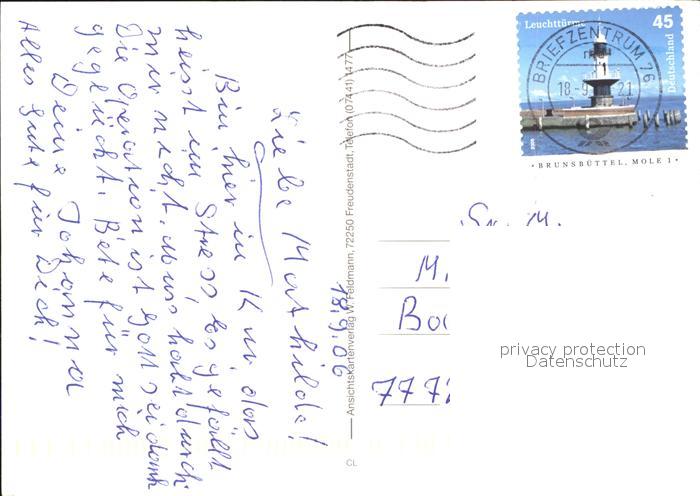 18.9.06
Liebe Mathilde!
Bin hier in Kur das
heisst im Stress Es gefällt
mir nicht. Muss halt durch.
Die Operation ist Gott sei dank
geglückt. Bete für mich
Deine Johanna
Alles gute für Dich!
Ansichtskartenverlag W. Feldmann, 72250 Freudenstadt, Telefon (07441) 1477
CL
Leuchttürme
45
Deutschland
BRIEFZENTRUM 76
18-9
21
· BRUNSBÜTTEL, MOLE 1 ·
M.
777
privacy protection
Datenschutz